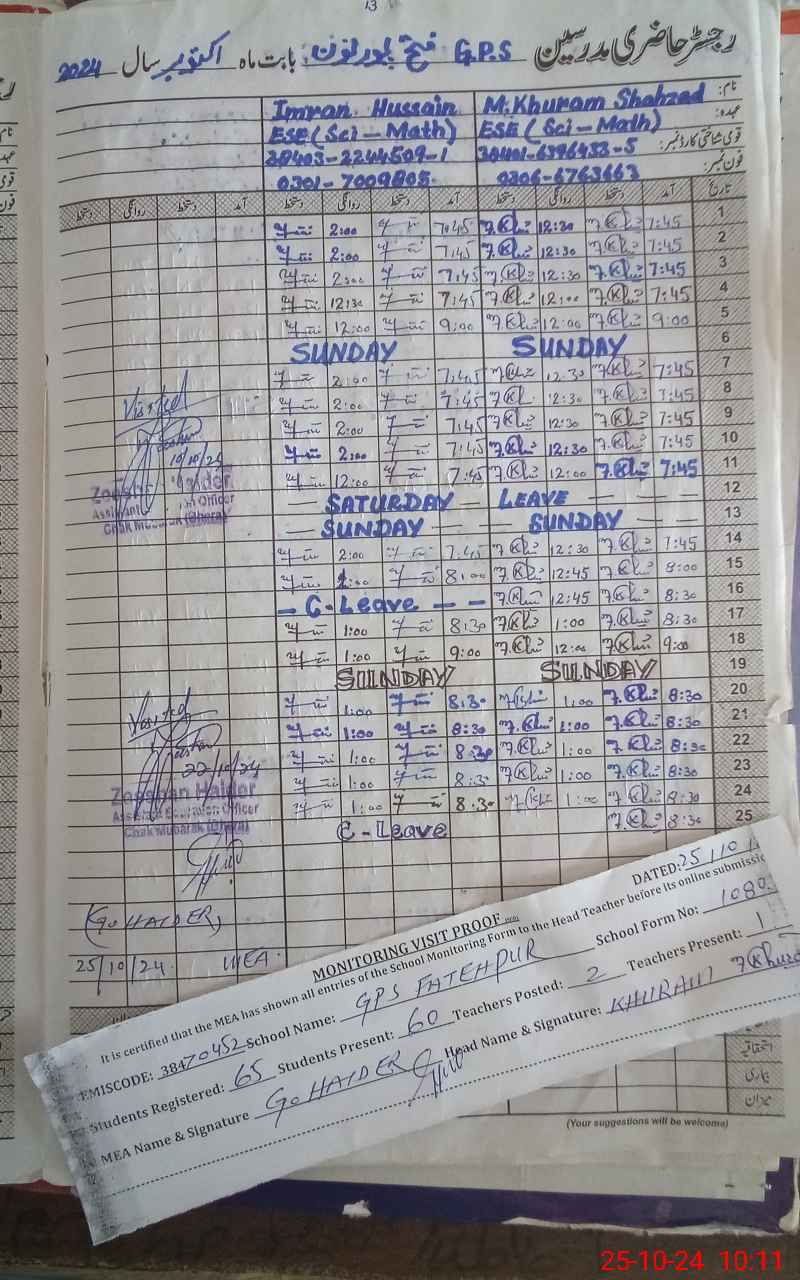 13
رجسٹر حاضری مدرسین G.P.S فتح پور نون بابت ماہ اکتوبر سال 2024
نام: M.Khuram Shahzad Imran Hussain
عہدہ: ESE (Sci-Math) ESE (Sci-Math)
قومی شناختی کارڈ نمبر: 38401-6396433-5 38403-2244509-1
فون نمبر: 0306-6763663 0301-7009805
تاریخ آمد دستخط روانگی دستخط آمد دستخط روانگی دستخط آمد دستخط روانگی دستخط
1 7:45 12:30 7.45 2:00
2 7:45 12:30 7.45 2:00
3 7:45 12:30 7.45 2:00
4 7:45 12:00 7:45 12:30
5 9:00 12:00 9:00 12:00
6 SUNDAY SUNDAY
7 7:45 12.30 7.45 2:00
8 7:45 12:30 7:45 2:00
9 7:45 12:30 7:45 2:00
10 7:45 12:30 7:45 2:00
11 7:45 12:00 7:45 12:00
12 SATURDAY LEAVE
13 SUNDAY SUNDAY
14 7:45 12:30 7.45 2:00
15 8:00 12:45 8:00
16 8:30 12:45 - C-Leave - -
17 8:30 1:00 8:30 1:00
18 9:00 12:00 9:00 1:00
19 SUNDAY SUNDAY
20 8:30 1:00 8.30 1:00
21 8:30 1:00 8:30 1:00
22 8:30 1:00 8:30 1:00
23 8:30 1:00 8:30 1:00
24 8:30 1:00 8.30 1:00
25 8:30 C-Leave
Visited
10/10/24
Zaeshan Haider
Assistant Education Officer
Chak Mubarak (Bhera)
Visited
22/10/24
Zaeshan Haider
Assistant Education Officer
Chak Mubarak (Bhera)
(Go HAIDER)
25/10/24 MEA
MONITORING VISIT PROOF
DATED: 25/10/
It is certified that the MEA has shown all entries of the School Monitoring Form to the Head Teacher before its online
EMISCODE: 38470452 School Name: GPS FATEHPUR School Form No: 1080
Students Registered: 65 Students Present: 60 Teachers Posted: 2 Teachers Present: 1
MEA Name & Signature Go HAIDER Head Name & Signature: KHURAM
(Your suggestions will be welcome)
25-10-24 10:11